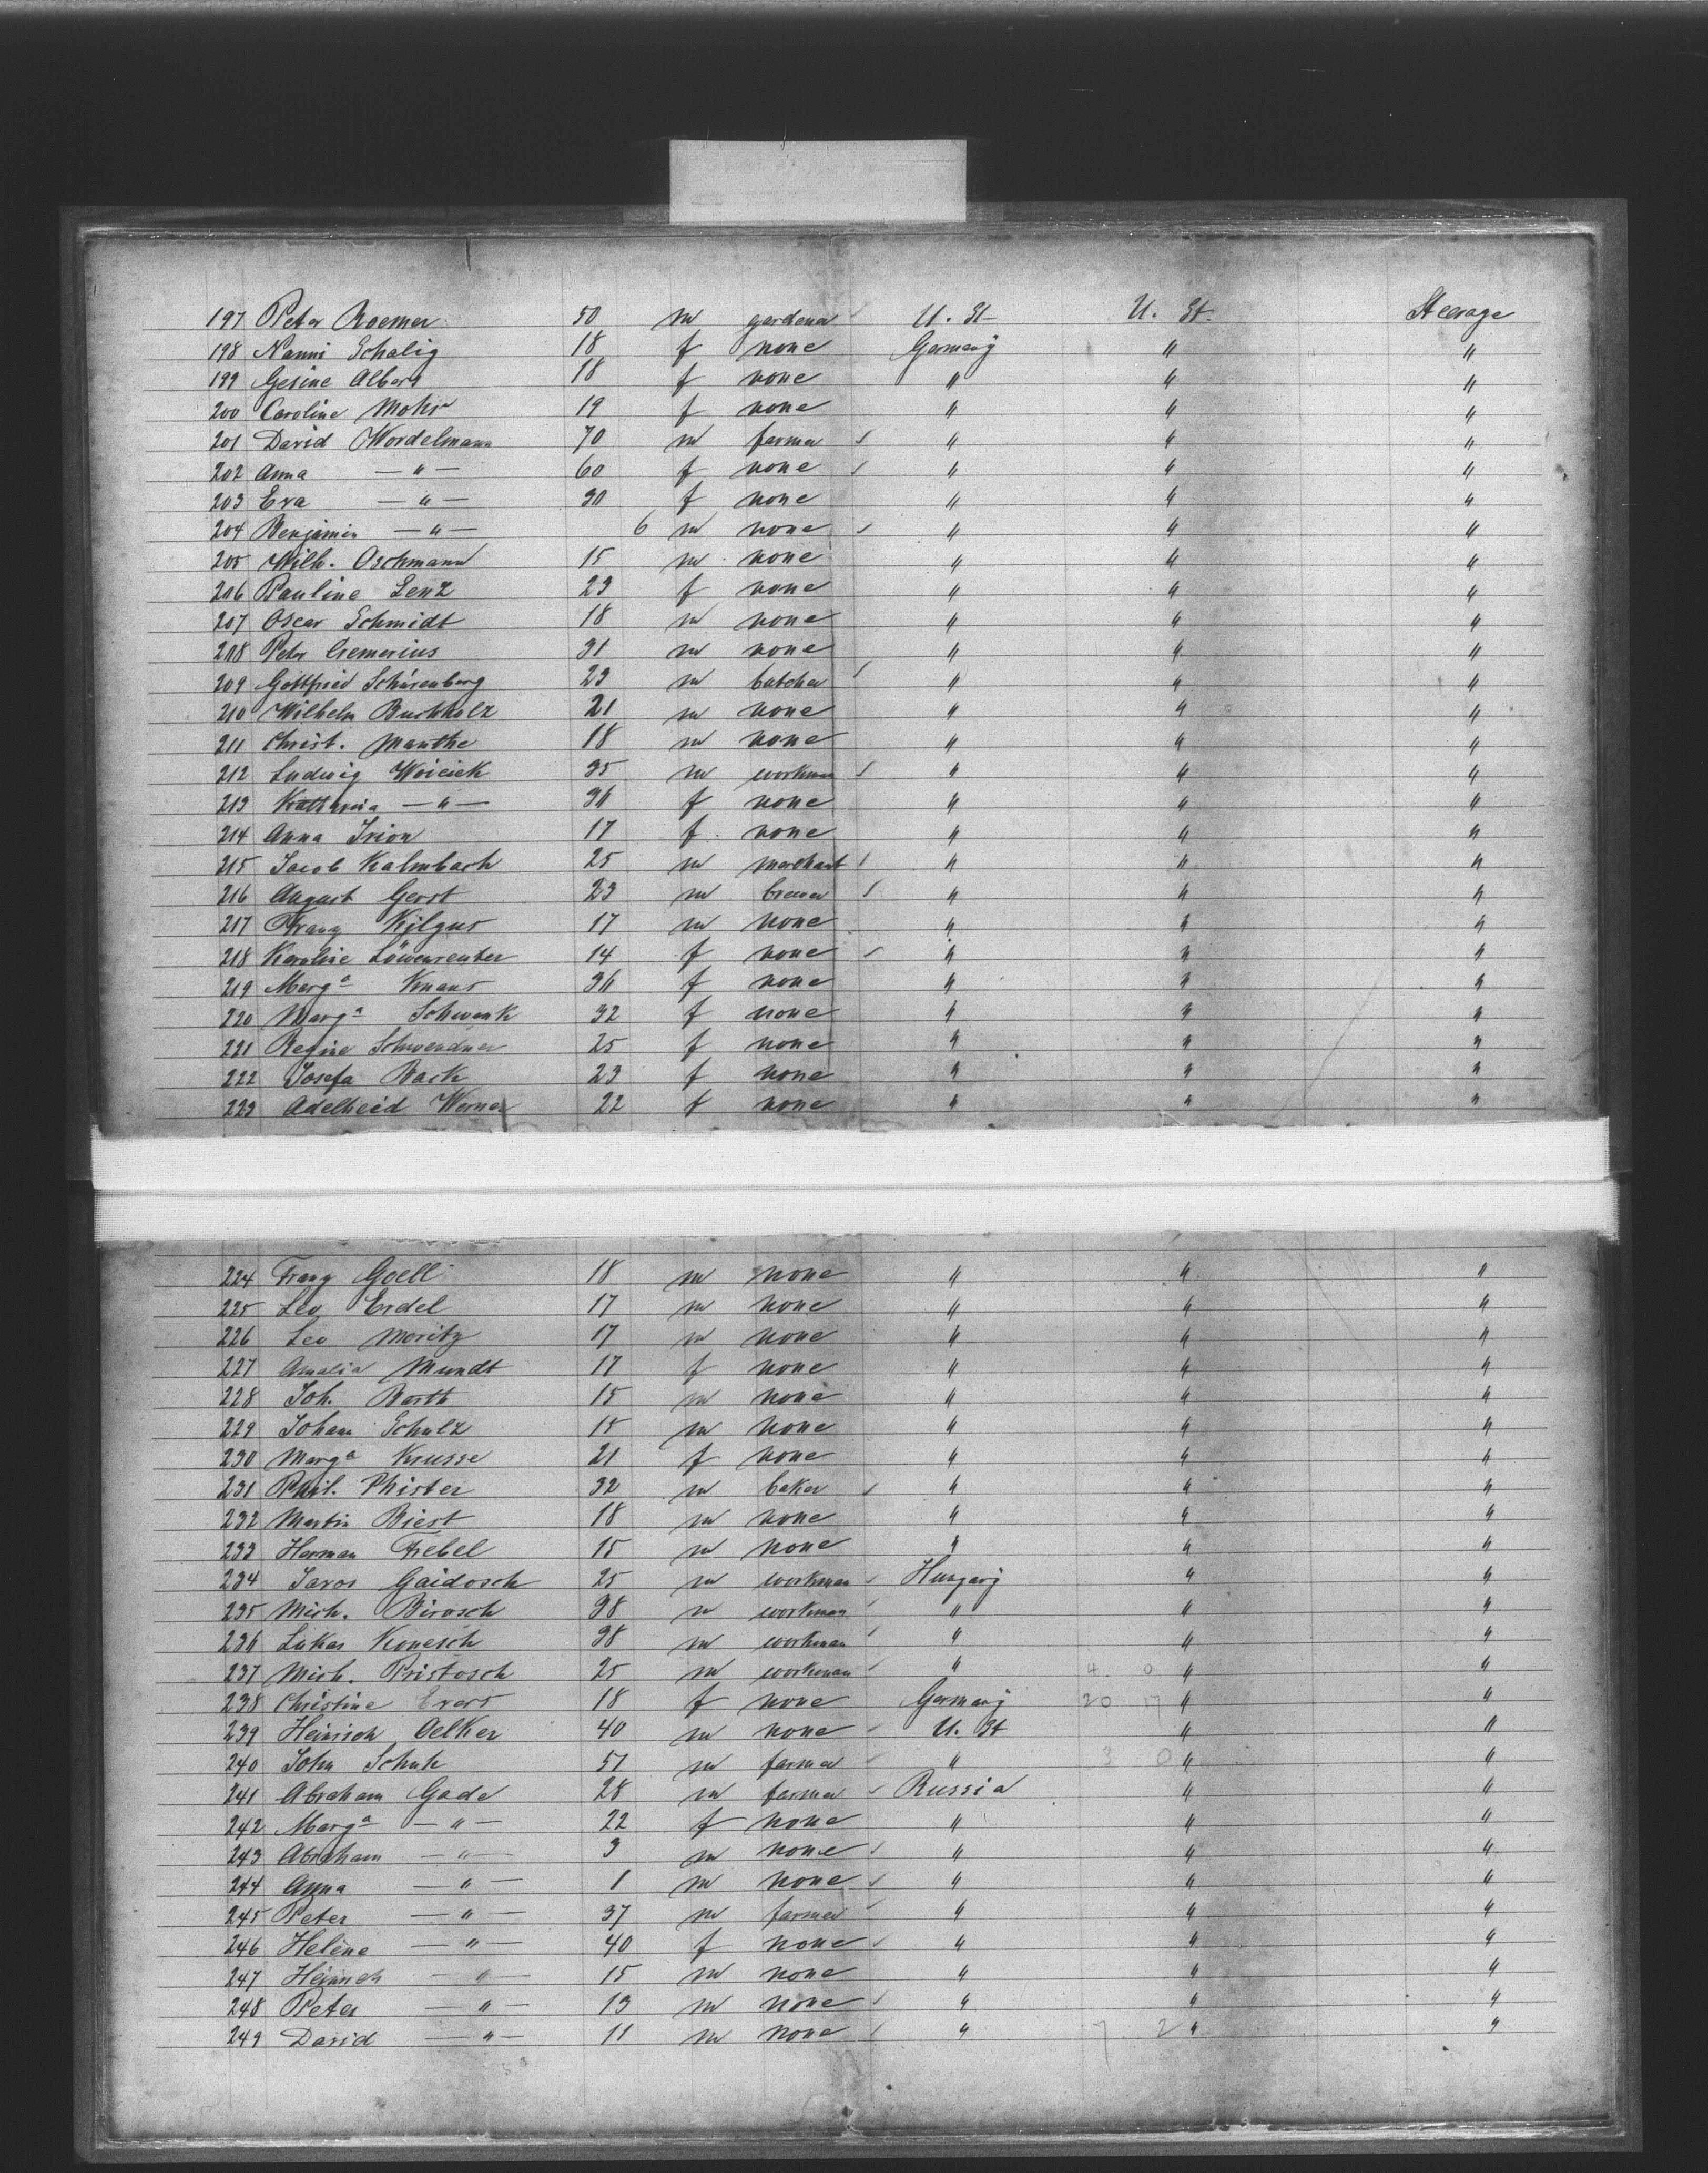 197 Peter Roemer 50 m gardener U. St U. St. Steerage
198 Nanni Schalig 18 f none Germany " "
199 Gesine Albers 18 f none " " "
200 Caroline Mohr 19 f none " " "
201 David Wordelmann 70 m farmer " " "
202 Anna — " — 60 f none " " "
203 Eva — " — 30 f none " " "
204 Benjamin — " — 6 m none " " "
205 Wilh. Oschmann 15 m none " " "
206 Pauline Lenz 23 f none " " "
207 Oscar Schmidt 18 m none " " "
208 Peter Cremerius 31 m none " " "
209 Gottfried Schürenberg 23 m butcher " " "
210 Wilhelm Buchholz 21 m none " " "
211 Christ. Manthe 18 m none " " "
212 Ludwig Woicick 35 m workman " " "
213 Katharina — " — 36 f none " " "
214 Anna Irion 17 f. none " " "
215 Jacob Kalmbach 25 m merchant " " "
216 August Gerst 23 m brewer " " "
217 Franz Kilgus 17 m none " " "
218 Karoline Löwenreuter 14 f none " " "
219 Marga Knaus 36 f none " " "
220 Marga Schwenk 32 f none " " "
221 Regine Schwendner 25 f none " " "
222 Josefa Back 23 f none " " "
223 Adelheid Werner 22 f none " " "
224 Franz Goell 18 m none " " "
225 Leo Erdel 17 m none " " "
226 Leo Moritz 17 m none " " "
227 Amalia Mundt 17 f none " " "
228 Joh. Barth 15 m none " " "
229 Johann Schulz 15 m none " " "
230 Marga Krusse 21 f none " " "
231 Phil. Phister 32 m baker " " "
232 Martin Biest 18 m none " " "
233 Herman Fiebel 15 m none " " "
234 Janos Gaidosch 25 m workman Hungary " "
235 Mich. Birosch 38 m workman " " "
236 Lukas Konesch 38 m workman " " "
237 Mich. Pristosch 25 m workman " 4 0 " "
238 Christine Evers 18 f none Germany 20 17 " "
239 Heinrich Oelker 40 m none U. St " "
240 John Schuh 51 m farmer " 3 0 " "
241 Abraham Gade 28 m farmer Russia " "
242 Marga — " — 22 f none " " "
243 Abraham — " — 3 m none " " "
244 Anna — " — 1 m none " " "
245 Peter — " — 37 m farmer " " "
246 Helene — " — 40 f none " " "
247 Heinrich — " — 15 m none " " "
248 Peter — " — 13 m none " " "
249 David — " — 11 m none " 7 2 " "